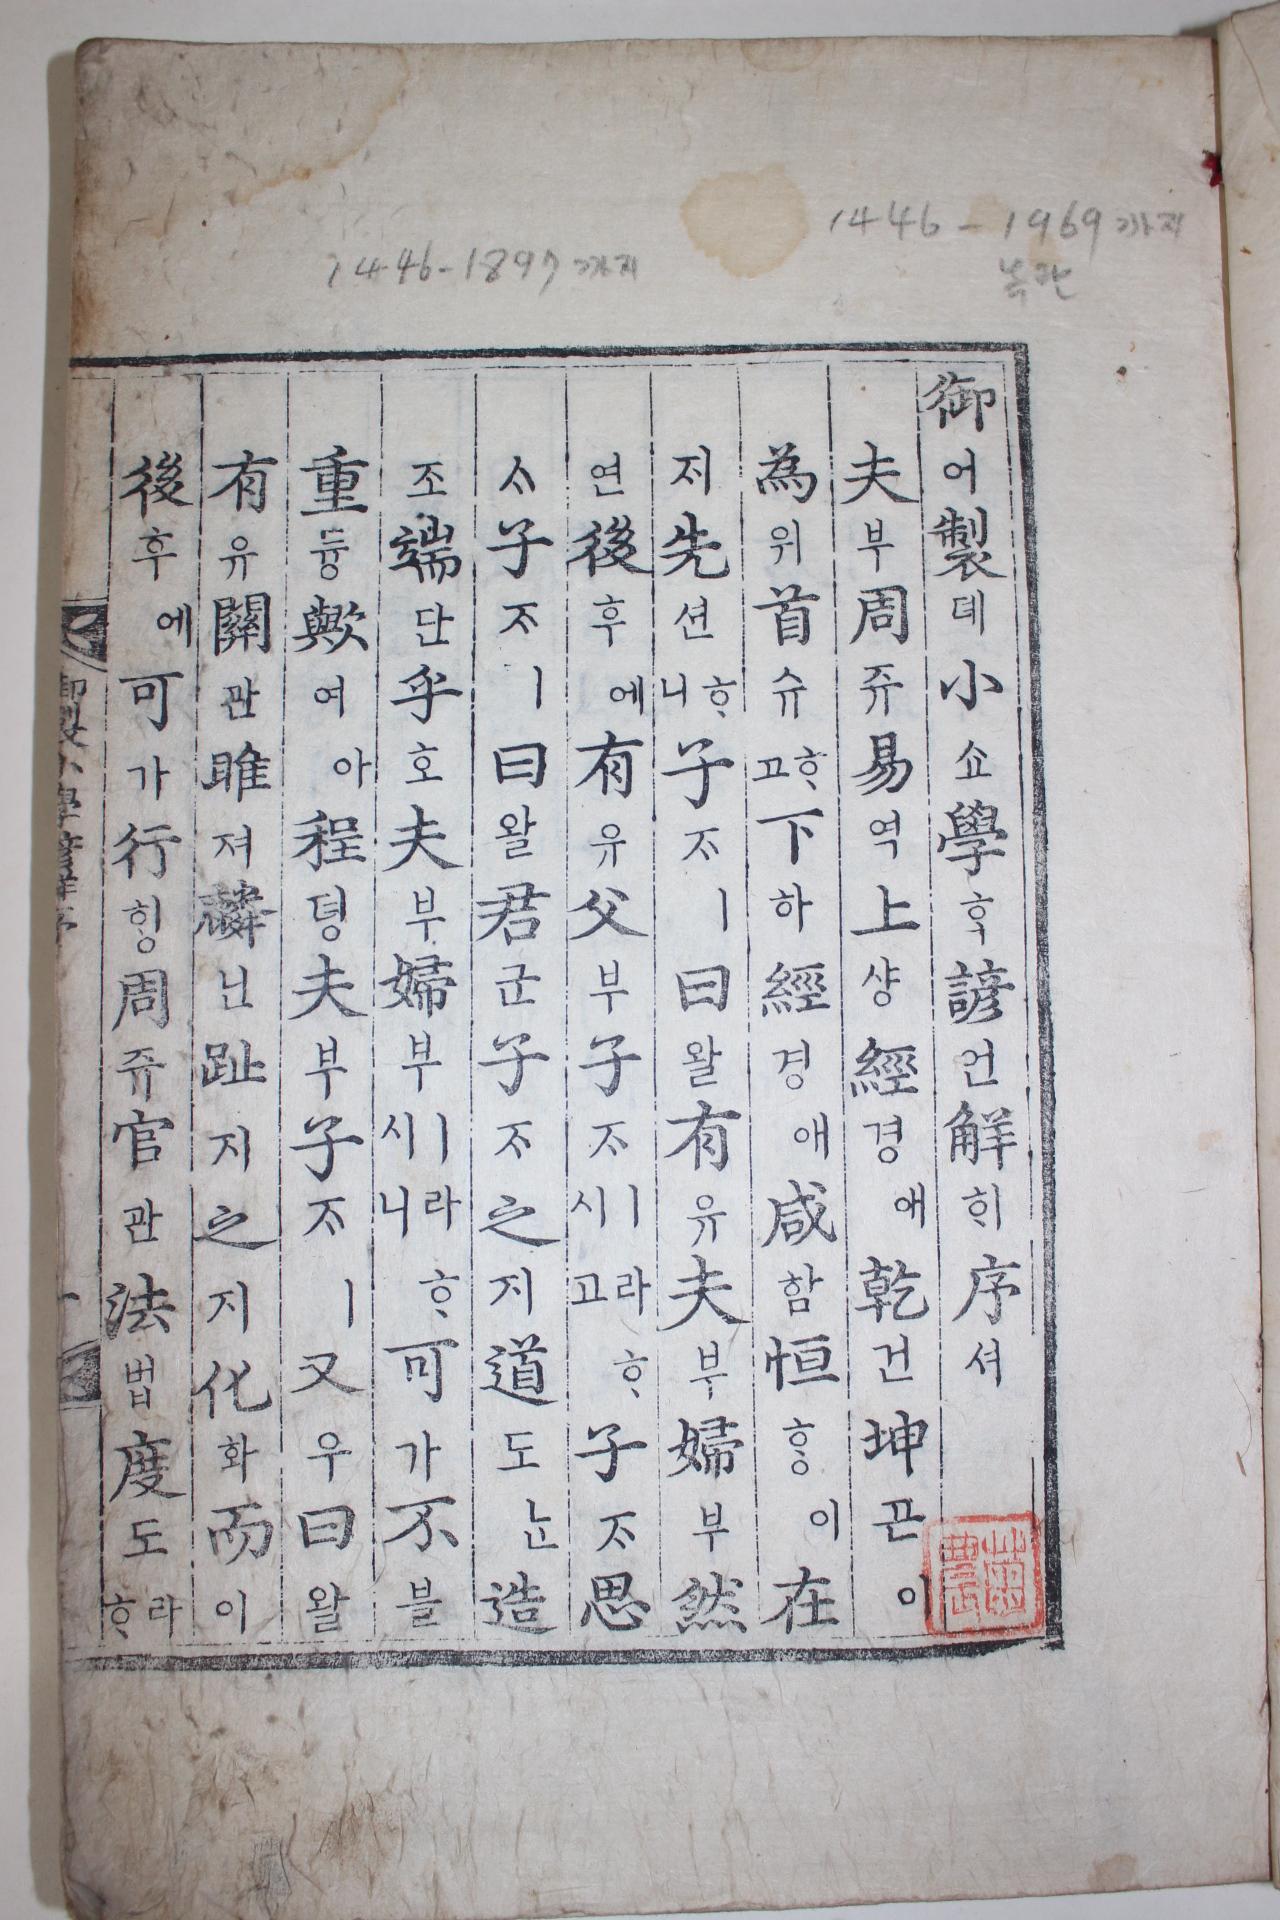 1446-1969까지
1446-1897까지
御어製뎨小쇼學ᄒᆞᆨ諺언解ᄒᆡ序셔
夫부周쥬易역上샹經경애乾건坤곤이
為위首슈ᄒᆞ고下하經경애咸함恒ᄒᆞᆼ이在
ᄌᆡ先션ᄒᆞ니子ᄌᆞㅣ曰왈有유夫부婦부然
연後후에有유父부子ᄌᆞㅣ라ᄒᆞ시고子ᄌᆞ思
ᄉᆞ子ᄌᆞㅣ曰왈君군子ᄌᆞ之지道도ᄂᆞᆫ造
조端단乎호夫부婦부ㅣ라ᄒᆞ시니可가不블
重듕歟여아程뎡夫부子ᄌᆞㅣ又우曰왈
有유關관雎져麟닌趾지之지化화而이
後후에可가行ᄒᆡᆼ周쥬官관法법度도라ᄒᆞ
御製小學諺解序 一